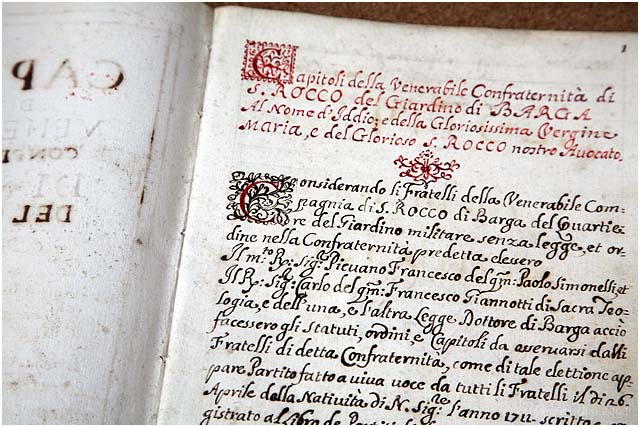 CAP
DE
VENE
CONF
DI
DEL
1
Capitoli della Venerabile Confraternità di
S. ROCCO del Giardino di BARGA
Al Nome d'Iddio, e della Gloriosissima Vergine
Maria, e del Glorioso S. ROCCO nostro Avocato.
Considerando li Fratelli della Venerabile Com-
pagnia di S. ROCCO di Barga del Quartie-
re del Giardino militare senza legge, et or-
dine nella Confraternità predetta elessero
Il m:to Rp: Sig:re Pievano Francesco del qm: Paolo Simonelli, et
Il Rp: Sig:re Carlo del qm: Francesco Giannotti di Sacra Teo-
logia, e dell'una, e l'altra Legge Dottore di Barga acciò
facessero gli statuti, ordini, e Capitoli da osservarsi dalli
Fratelli di detta Confraternita, come di tale elettione ap-
pare Partito fatto a viva voce da tutti li Fratelli il dì 26
Aprile della Natività di N. Sig:re l'anno 1711 scritto, e
gistrato al Libro de